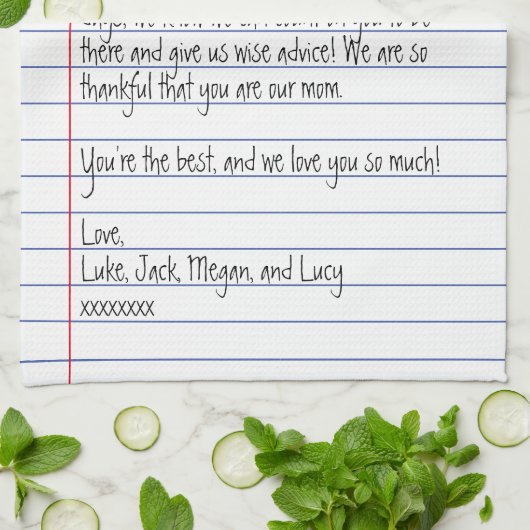 we know we can count on you to be
there and give us wise advice! We are so
thankful that you are our mom.
You're the best, and we love you so much!
Love,
Luke, Jack, Megan, and Lucy
xxxxxxxx